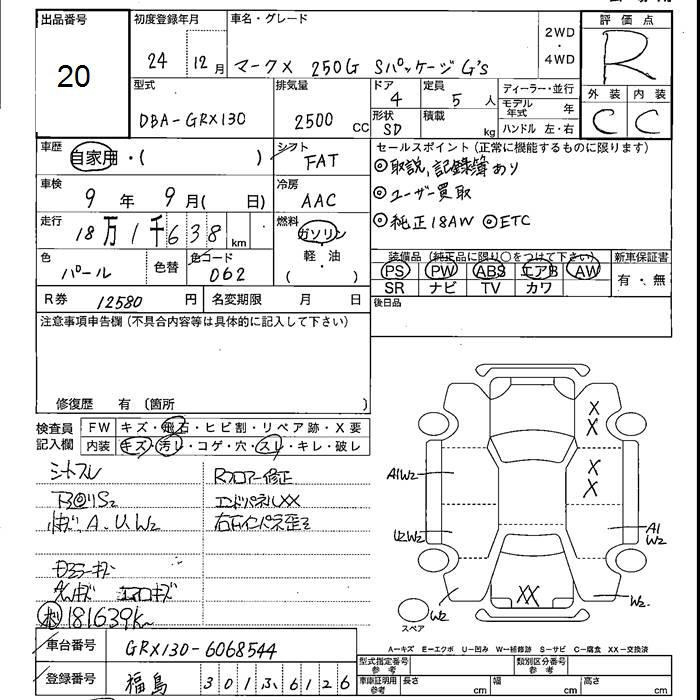 出品番号
20
初度登録年月
24 12月
車名・グレード
マークX 250G Sパッケージ G's
2WD・4WD
評価点
R
外装 内装
C C
型式
DBA-GRX130
排気量
2500 CC
ドア
4
定員
5 人
形状
SD
積載
kg
ディーラー・並行
モデル年式 年
ハンドル 左・右
車歴
自家用・( )
シフト
FAT
セールスポイント(正常に機能するものに限ります)
◎取説、記録簿あり
◎ユーザー買取
◎純正18AW ◎ETC
車検
9年 9月( 日)
冷房
AAC
走行
18万1千638km
燃料
ガソリン
軽・油
( )
色
パール
色替
色コード
062
装備品(純正品に限り○をつけて下さい)
PS PW ABS エアB AW
SR ナビ TV カワ
新車保証書
有・無
R券 12580円
名変期限 月 日
後日品
注意事項申告欄(不具合内容等は具体的に記入して下さい)
修復歴 有 〔箇所 〕
検査員記入欄
FW キズ・飛石・ヒビ割・リペア跡・X要
内装 キズ・汚レ・コゲ・穴・スレ・キレ・破レ
シートスレ
Rフロアー修正
エンドパネルXX
A.UW2
181639K
X
X
X
X
XX
A1W2
U2W2
A1
W2
W2
W2
スペア
A=キズ E=エクボ U=凹み W=補修跡 S=サビ C=腐食 XX=交換済
車台番号 GRX130-6068544
登録番号 福島 301ふ6126
型式指定番号 参考
類別区分番号 参考
車庫証明用 参考 長さ cm 幅 cm 高さ cm